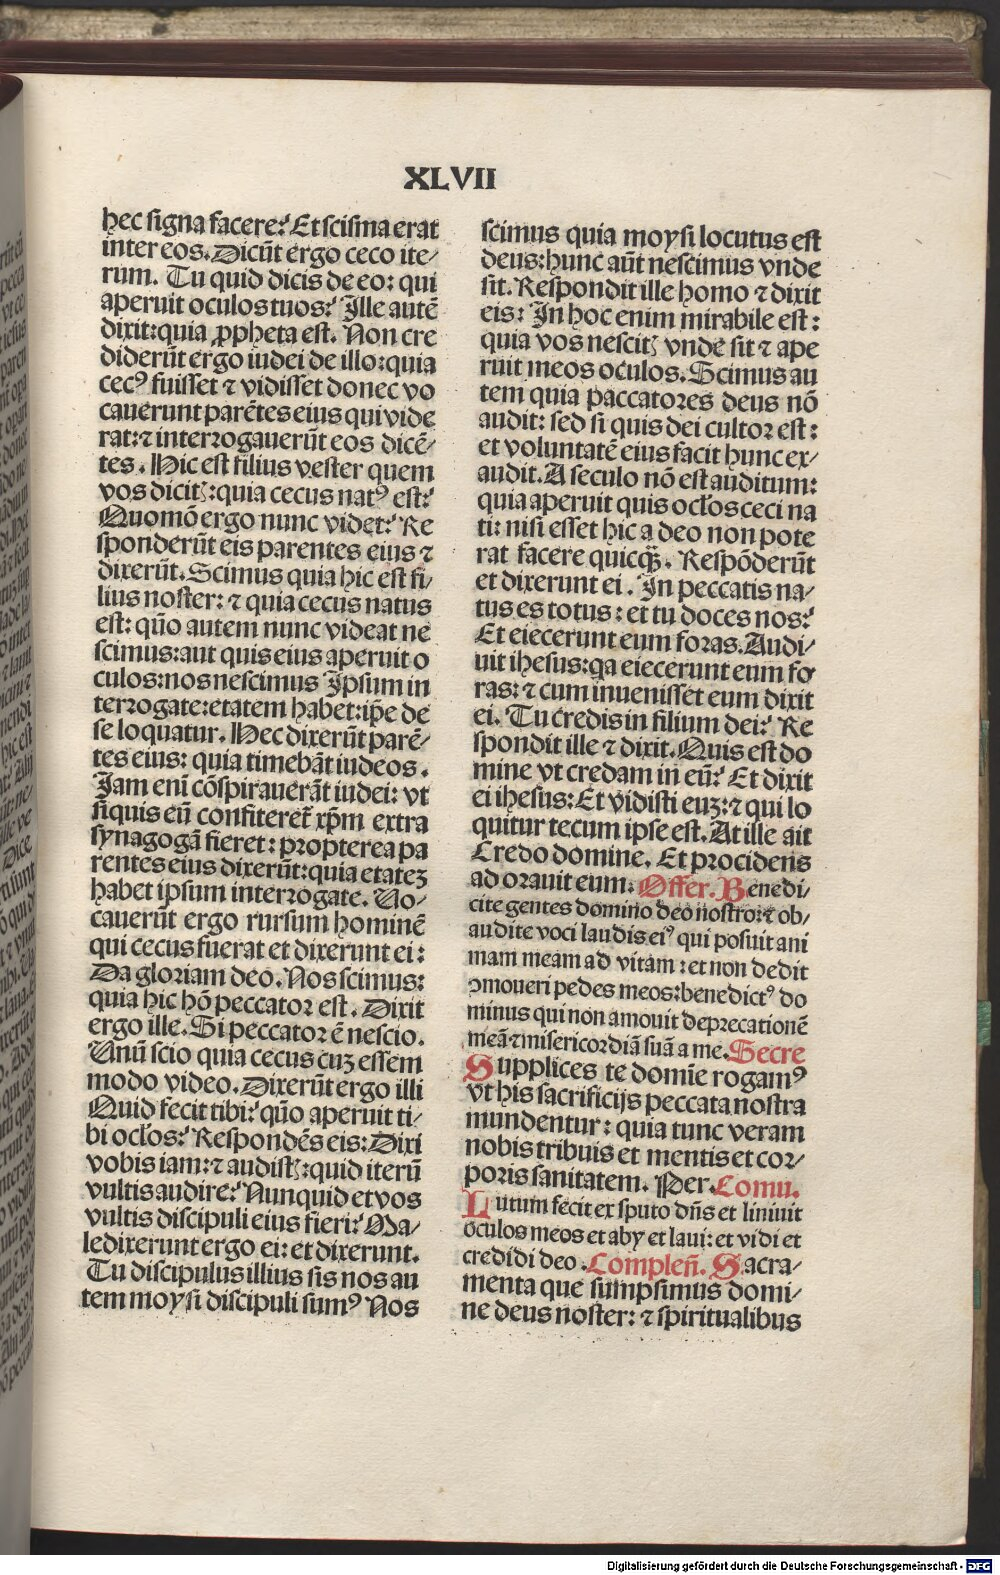 XLVII
hec signa facere? Et scisma erat
inter eos. Dicūt ergo ceco ite/
rum. Tu quid dicis de eo: qui
aperuit oculos tuos? Ille autē
dixit: quia ꝓpheta est. Non cre
diderūt ergo iudei de illo: quia
cecꝰ fuisset ⁊ vidisset donec vo
cauerunt parētes eius qui vide
rat: ⁊ interrogauerūt eos dicē/
tes. Hic est filius vester quem
vos dicitꝫ: quia cecus natꝰ est?
Quomō ergo nunc videt? Re
sponderūt eis parentes eius ⁊
dixerūt. Scimus quia hic est fi/
lius noster: ⁊ quia cecus natus
est: quō autem nunc videat ne
scimus: aut quis eius aperuit o
culos: nos nescimus Ipsum in
terrogate: etatem habet: ip̄e de
se loquatur. Hec dixerūt parē/
tes eius: quia timebāt iudeos.
Jam eni cōspirauerāt iudei: vt
si quis eū confiteret̄ xp̄m extra
synagogā fieret: propterea pa
rentes eius dixerūt: quia etateꝫ
habet ipsum interrogate. Uo/
cauerūt ergo rursum hominē
qui cecus fuerat et dixerunt ei:
Da gloriam deo. Nos scimus:
quia hic hō peccator est. Dixit
ergo ille. Si peccator ē nescio.
Unū scio quia cecus cuꝫ essem
modo video. Dixerūt ergo illi
Quid fecit tibi? quō aperuit ti/
bi ocłos? Respondēs eis: Dixi
vobis iam: ⁊ audistꝫ: quid iterū
vultis audire? Nunquid et vos
vultis discipuli eius fieri? Ma/
ledixerunt ergo ei: et dixerunt.
Tu discipulus illius sis nos au
tem moysi discipuli sumꝰ Nos
scimus quia moysi locutus est
deus: hunc aūt nescimus vnde
sit. Respondit ille homo ⁊ dixit
eis: In hoc enim mirabile est:
quia vos nescitꝫ vnde sit ⁊ ape
ruit meos oculos. Scimus au
tem quia paccatores deus nō
audit: sed si quis dei cultor est:
et voluntatē eius facit hunc ex/
audit. A seculo nō est auditum:
quia aperuit quis ocłos ceci na
ti: nisi esset hic a deo non pote
rat facere quicq̄ꝫ. Respōderūt
et dixerunt ei. In peccatis na/
tus es totus: et tu doces nos?
Et eiecerunt eum foras. Audi/
uit ihesus: qa eiecerunt eum fo
ras: ⁊ cum inuenisset eum dixit
ei. Tu credis in filium dei? Re
spondit ille ⁊ dixit. Quis est do
mine vt credam in eū? Et dixit
ei ihesus: Et vidisti euꝫ: ⁊ qui lo
quitur tecum ipse est. At ille ait
Credo domine. Et procidens
ad orauit eum. Offer. Benedi/
cite gentes domino deo nostro: ⁊ ob/
audite voci laudis eiꝰ qui posuit ani
mam meam ad vitam: et non dedit
ↄmoueri pedes meos: benedictꝰ do
minus qui non amouit deprecationē
meā ⁊ misericordiā suā a me. Secre
Supplices te domīe rogamꝰ
vt his sacrificijs peccata nostra
mundentur: quia tunc veram
nobis tribuis et mentis et cor/
poris sanitatem. Per. Comu.
Lutum fecit ex sputo dn̄s et liniuit
oculos meos et aby et laui: et vidi et
credidi deo. Compleñ. Sacra/
menta que sumpsimus domi/
ne deus noster: ⁊ spiritualibus
Digitalisierung gefördert durch die Deutsche Forschungsgemeinschaft - DFG